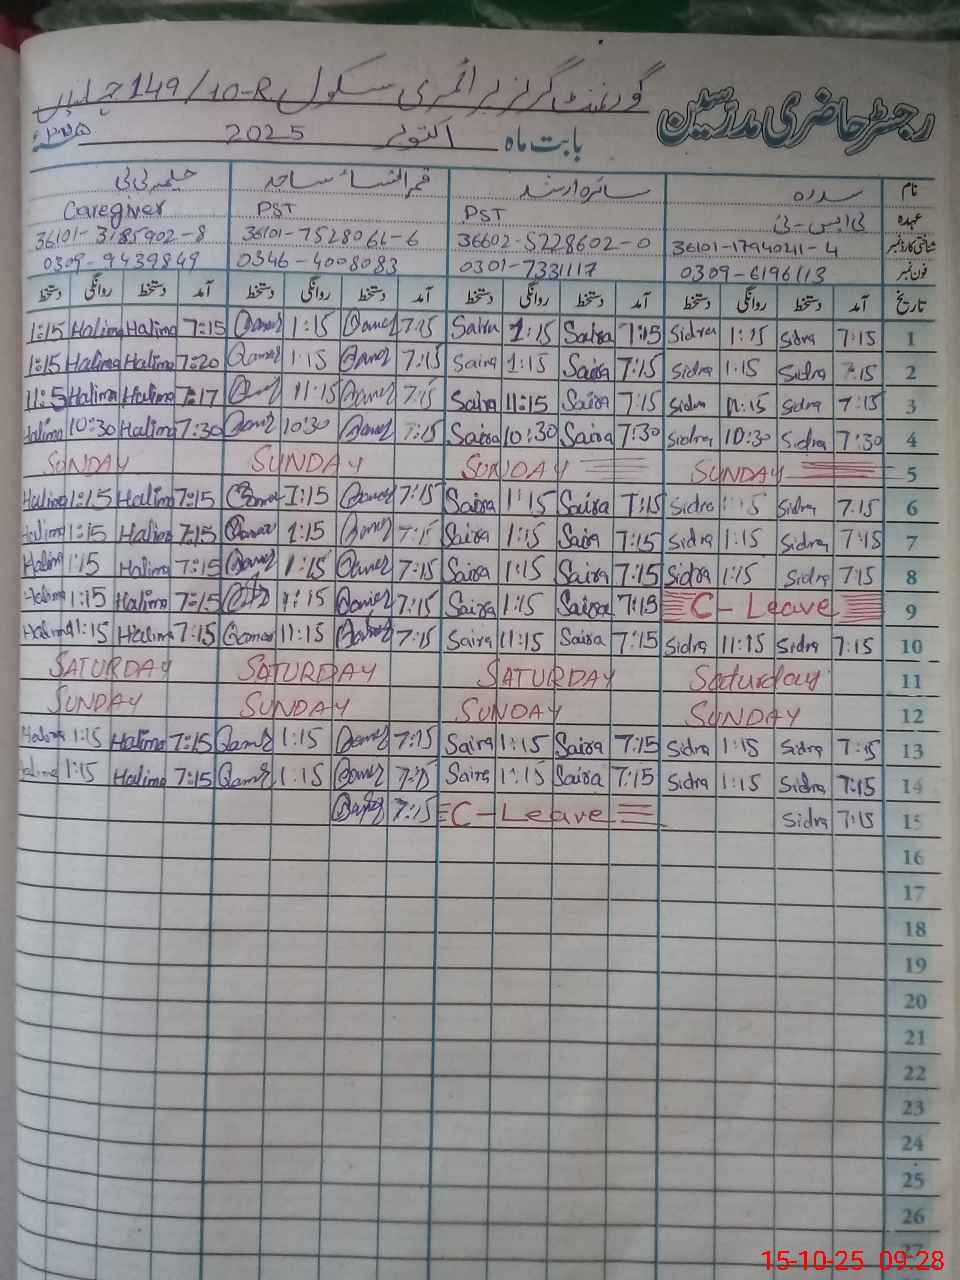 رجسٹر حاضری مدرسین
گورنمنٹ گرلز پرائمری سکول 149/10-R جہانیاں
بابت ماہ اکتوبر 2025
نام سدرہ سائرہ ارشد قمر النساء ساجد حلیمہ بی بی
عہدہ پی ایس ٹی PST PST Caregiver
شناختی کارڈ نمبر 36101-1794041-4 36602-5228602-0 36101-7528061-6 36101-3185902-8
فون نمبر 0309-6196113 0301-7331117 0346-4008083 0309-9439849
تاریخ آمد دستخط روانگی دستخط آمد دستخط روانگی دستخط آمد دستخط روانگی دستخط آمد دستخط روانگی دستخط
1 7:15 Sidra 1:15 Sidra 7:15 Saira 1:15 Saira 7:15 Qamer 1:15 Qamer 7:15 Halima Halima 1:15
2 7:15 Sidra 1:15 Sidra 7:15 Saira 1:15 Saira 7:15 Qamer 1:15 Qamer 7:20 Halima Halima 1:15
3 7:15 Sidra 11:15 Sidra 7:15 Saira 11:15 Saira 7:15 Qamer 11:15 Qamer 7:17 Halima Halima 11:5
4 7:30 Sidra 10:30 Sidra 7:30 Saira 10:30 Saira 7:15 Qamer 10:30 Qamer 7:30 Halima 10:30 Halima
5 SUNDAY SUNDAY SUNDAY SUNDAY
6 7:15 Sidra 1:15 Sidra 7:15 Saira 1:15 Saira 7:15 Qamer 1:15 Qamer 7:15 Halima 1:15 Halima
7 7:15 Sidra 1:15 Sidra 7:15 Saira 1:15 Saira 7:15 Qamer 1:15 Qamer 7:15 Halima 1:15 Halima
8 7:15 Sidra 1:15 Sidra 7:15 Saira 1:15 Saira 7:15 Qamer 1:15 Qamer 7:15 Halima 1:15 Halima
9 C-Leave 7:15 Saira 1:15 Saira 7:15 Qamer 1:15 7:15 Halima 1:15 Halima
10 7:15 Sidra 11:15 Sidra 7:15 Saira 11:15 Saira 7:15 Qamer 11:15 Qamer 7:15 Halima 11:15 Halima
11 Saturday SATURDAY SATURDAY SATURDAY
12 SUNDAY SUNDAY SUNDAY SUNDAY
13 7:15 Sidra 1:15 Sidra 7:15 Saira 1:15 Saira 7:15 Qamer 1:15 Qamer 7:15 Halima 1:15 Halima
14 7:15 Sidra 1:15 Sidra 7:15 Saira 1:15 Saira 7:15 Qamer 1:15 Qamer 7:15 Halima 1:15 Halima
15 7:15 Sidra C-Leave 7:15 Qamer
16
17
18
19
20
21
22
23
24
25
26
27
15-10-25 09:28